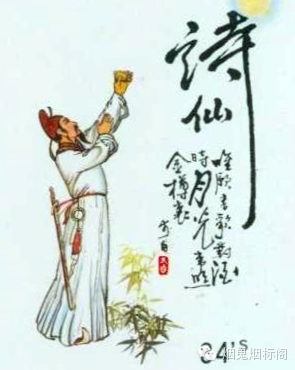 詩仙
唯願當歌對酒
時月光長照
金樽裏
李白
84'S
烟鬼烟标阁